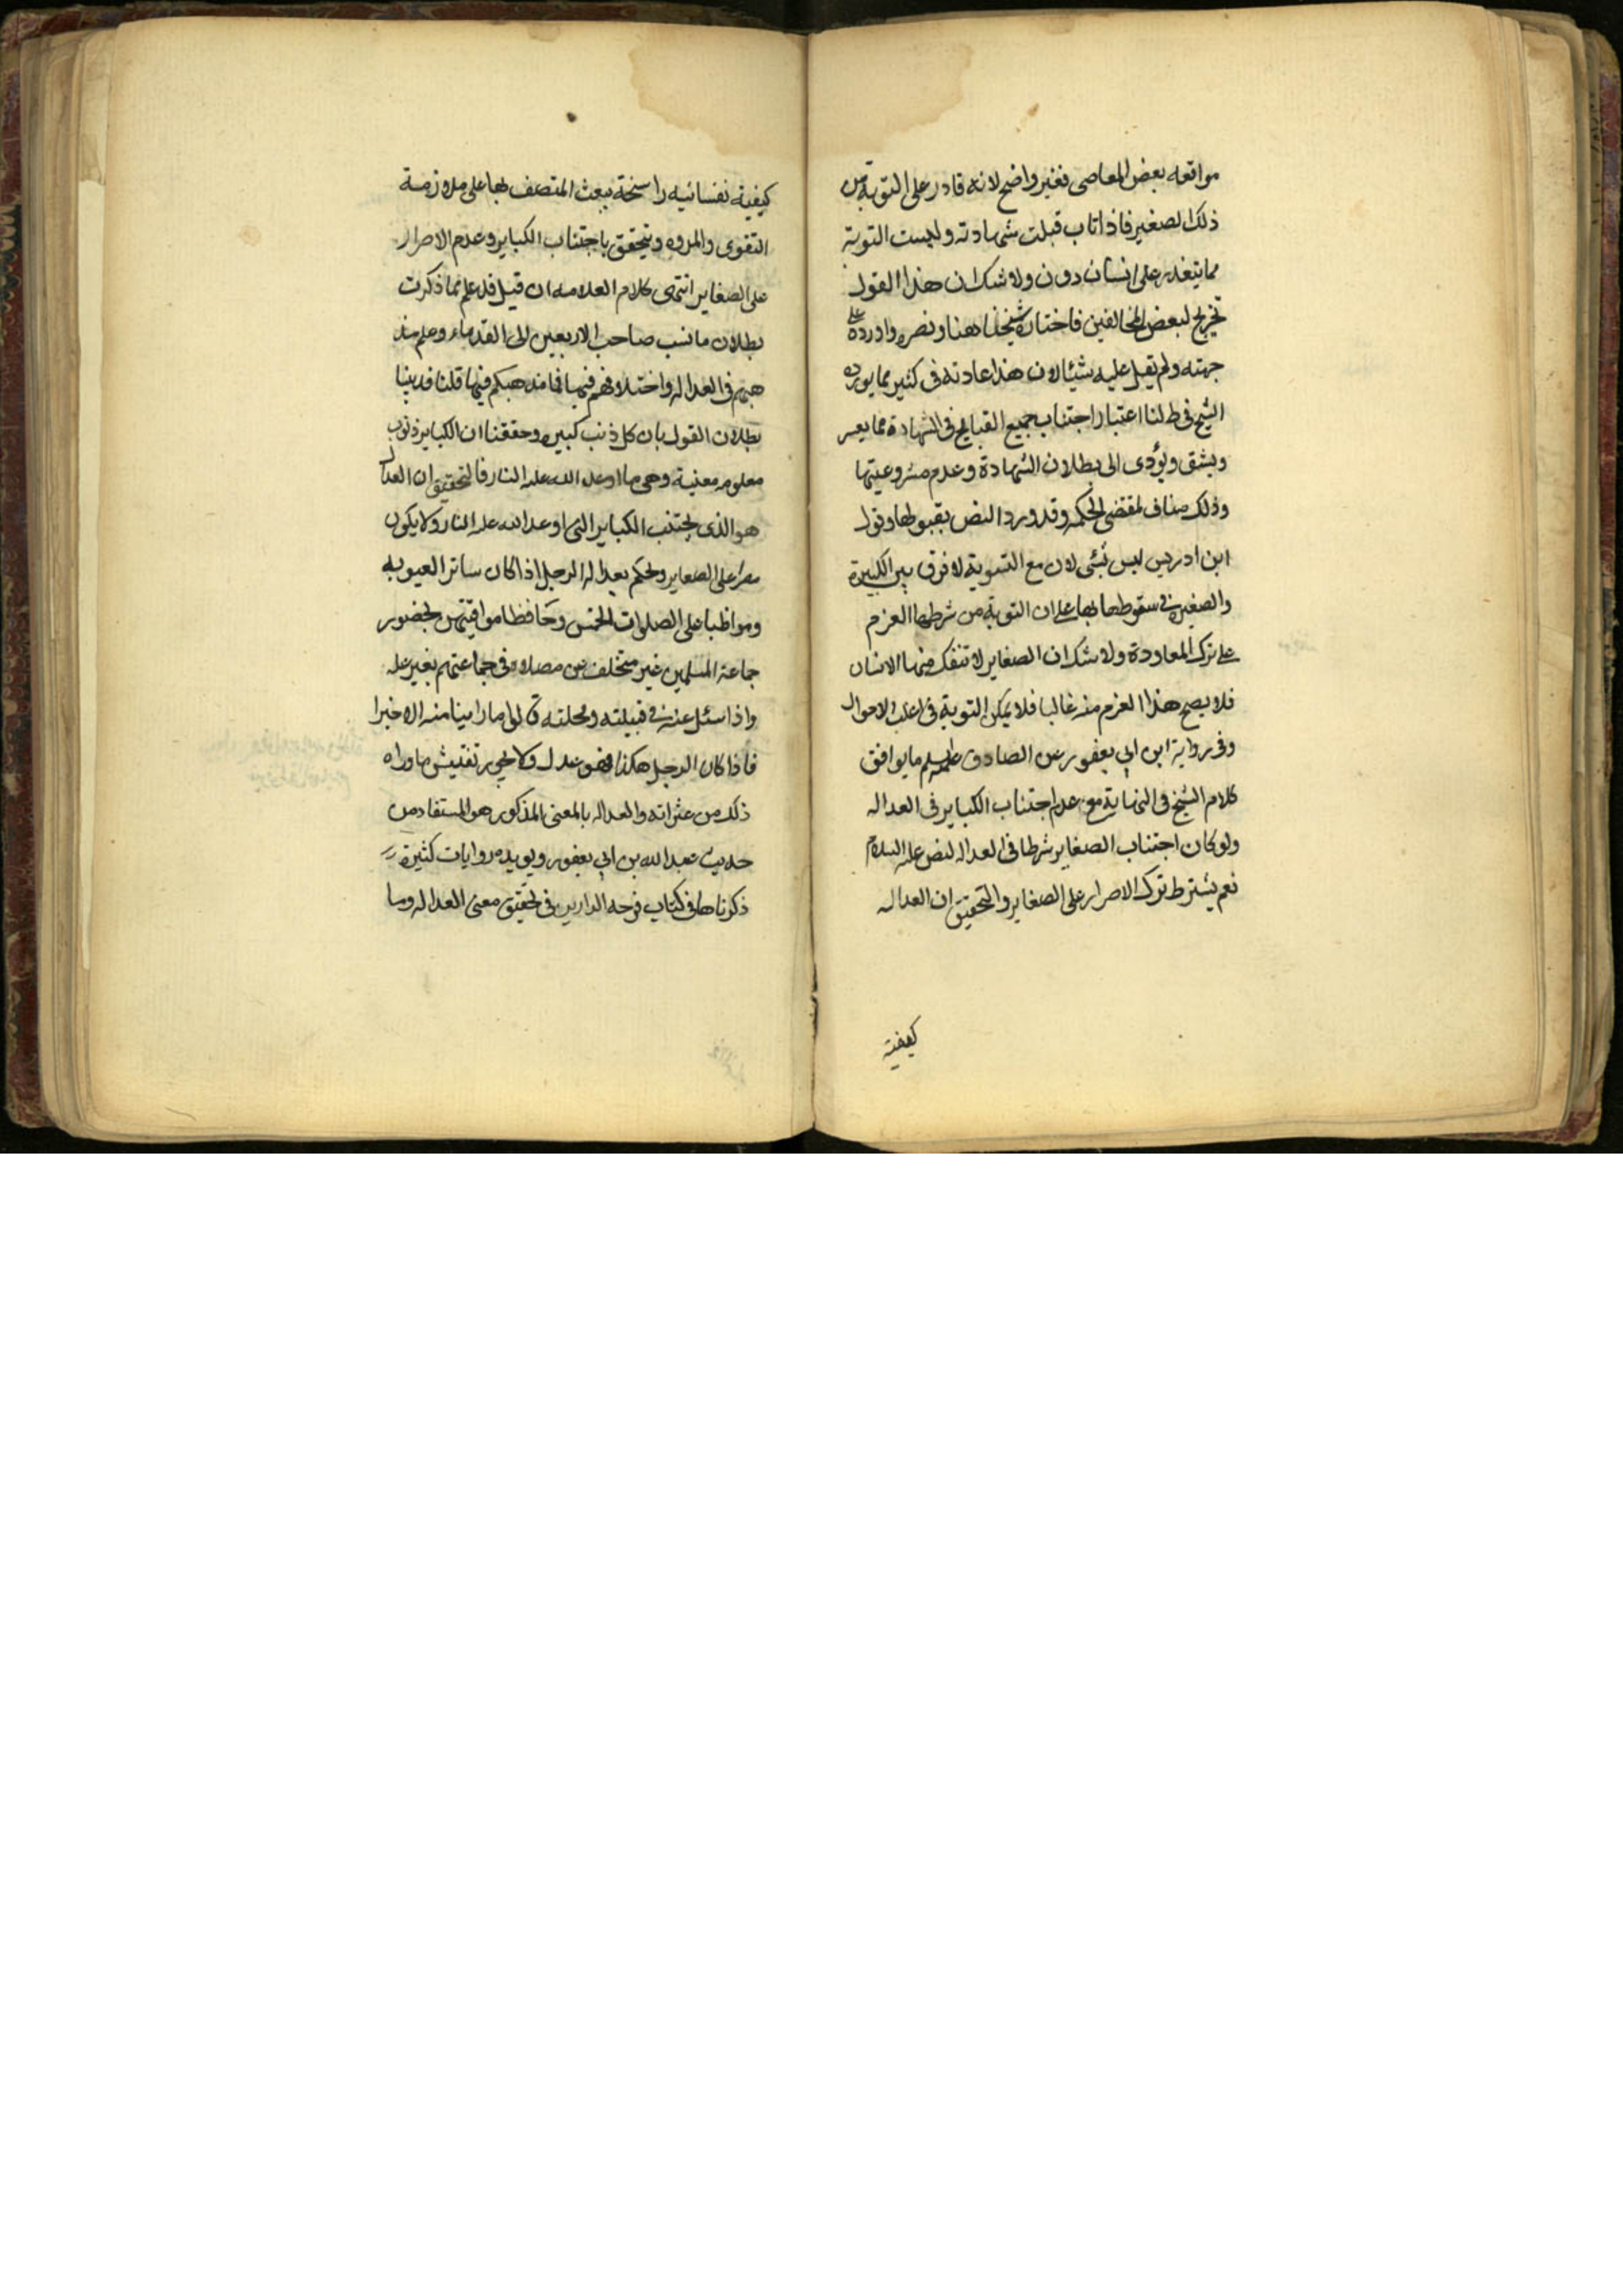 مواقعه بعض المعاصى فغير واضح لانه قادر على التوبة من
ذلك الصغير فاذا تاب قبلت شهادته وليست التوبة
مما يتعذر على انسان دون ولا شك ان هذا القول
تخريج لبعض المخالفين فاختاره شيخنا هنا ونصره واورده على
جهته ولم يقل عليه شيئا لان هذا عادته فى كثير مما يورده
الشيخ فى ط لنا اعتبار اجتناب جميع القبايح فى الشهادة مما يعسر
ويشق ويؤدى الى بطلان الشهادة وعدم مشروعيتها
وذلك مناف لمقتضى الحكمه وقد ورد النص بقبولها وقول
ابن ادريس ليس بشئى لان مع التسوية لا فرق بين الكبيرة
والصغيره فى سقوطها بها على ان التوبة من شرطها العزم
على ترك المعاودة ولا شك ان الصغاير لا تنفك منها الانسان
فلا يصح هذا العزم منه غالبا فلا يمكن التوبة فى اغلب الاحوال
وفى رواية ابن ابي يعفور عن الصادق ما يوافق
كلام الشيخ فى النهاية مع عدم اجتناب الكباير فى العداله
ولو كان اجتناب الصغاير شرطا فى العداله لنص عليه السلام
نعم يشترط ترك الاصرار على الصغاير والتحقيق ان العداله
كيفية
كيفية نفسانيه راسخة يبعث المتصف بها على ملازمة
التقوى والمروه ويتحقق باجتناب الكباير وعدم الاصرار
على الصغاير انتهى كلام العلامه ان قيل قد علم مما ذكرت
بطلان ما نسب صاحب الاربعين الى القدماء وعلم مذ
هبهم فى العداله واختلافهم فيها فما مذهبكم فيها قلنا قد بينا
بطلان القول بان كل ذنب كبيره وحققنا ان الكباير ذنوب
معلومه معنية وهى ما اوعد الله عليه النار فالتحقيق ان العدل
هو الذى يجتنب الكباير التى اوعد الله عليه النار ولا يكون
مصرا على الصغاير ويحكم بعداله الرجل اذا كان ساترا لعيوبه
ومواظبا على الصلوات الخمس وحافظا مواقيتهن بحضور
جماعة المسلمين غير متخلف عن مصلاه فى جماعتهم بغير علة
واذا سئل عنه فى قبيلته ومحلته قالوا ما راينا منه الا خيرا
فاذا كان الرجل هكذا فهو عدل ولا يجوز تفتيش ما وراه
ذلك من عثراته والعداله بالمعنى المذكور هو المستفاد من
حديث عبد الله بن ابي يعفور ويويده روايات كثيرة
ذكرناها فى كتاب فرحه الدارين فى تحقيق معنى العداله وما